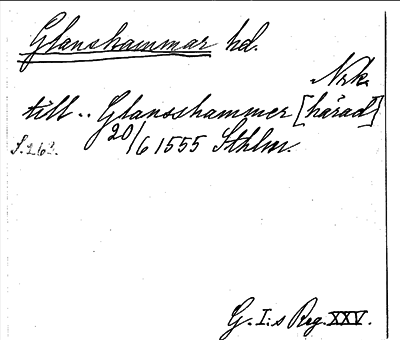 Glanshammar hd.
Nrk.
till .. Glansshammer [härad]
S. 262. 20/6 1555 Sthlm.
G. I:s Reg. XXV.